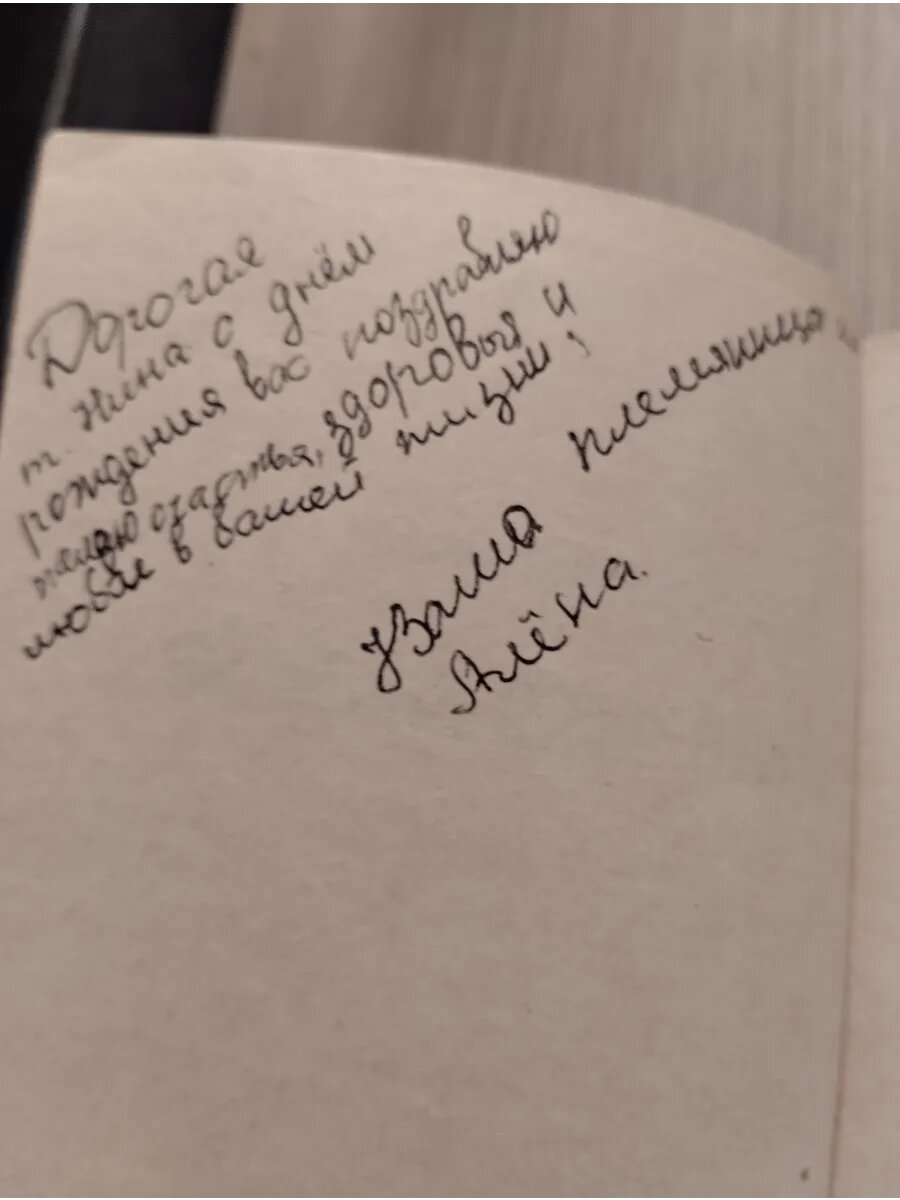 Дорогая
т. Нина с днём
рождения вас поздравляю
желаю счастья, здоровья и
любви в вашей жизни;
Ваша племянница
Алёна.